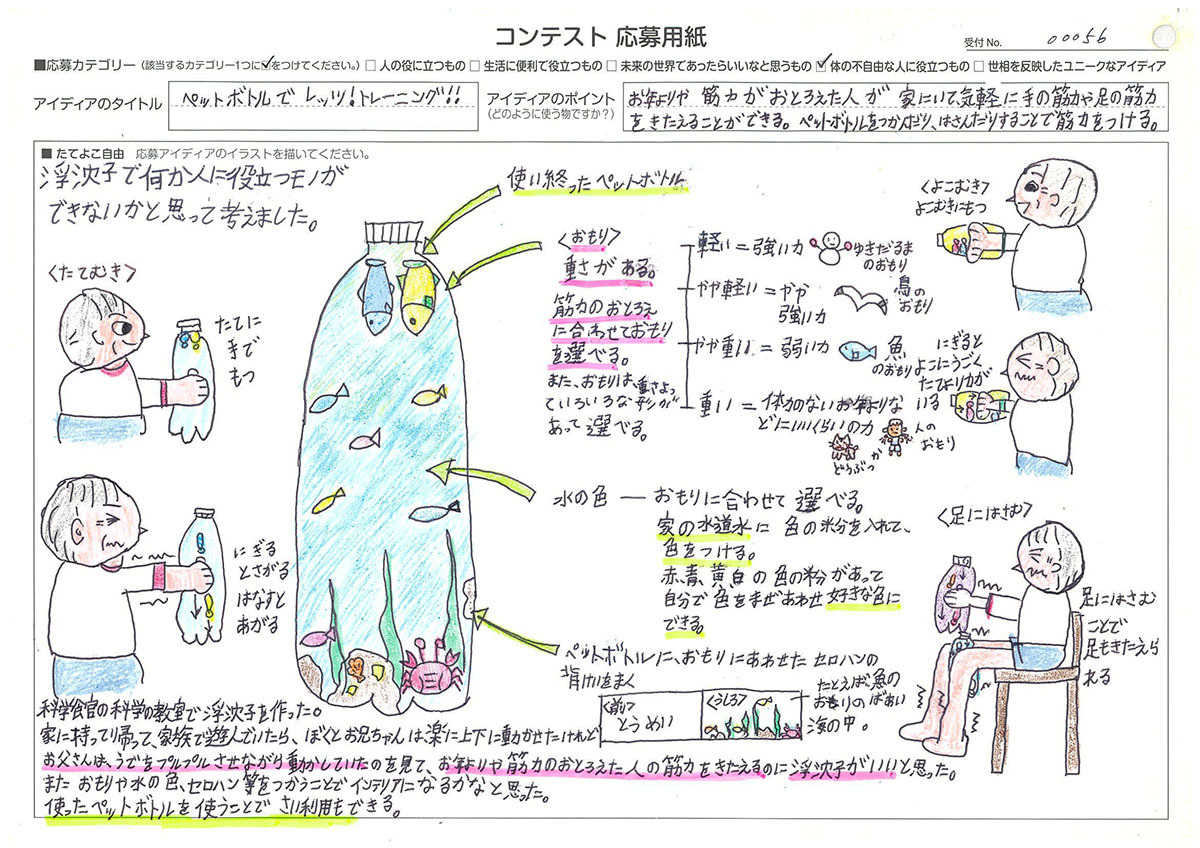 コンテスト 応募用紙
受付 No. 00056
■応募カテゴリー（該当するカテゴリー1つに☑をつけてください。）□人の役に立つもの □生活に便利で役立つもの □未来の世界であったらいいなと思うもの ☑体の不自由な人に役立つもの □世相を反映したユニークなアイディア
アイディアのタイトル
ペットボトルで レッツ!トレーニング!!
アイディアのポイント
（どのように使う物ですか？）
お年よりや 筋力がおとろえた人が 家にいて、気軽に手の筋力や足の筋力
をきたえることができる。ペットボトルをつかんだり、はさんだりすることで筋力をつける。
■ たてよこ自由 応募アイディアのイラストを描いてください。
浮沈子で何か人に役立つモノが
できないかと思って考えました。
使い終ったペットボトル
〈たてむき〉
たてに
手で
もつ
にぎる
とさがる
はなすと
あがる
〈おもり〉
重さがある。
筋力のおとろえ
に合わせておもり
を選べる。
また、おもりは、重さよっ
ていろいろな形が
あって選べる。
軽い＝強い力
ゆきだるま
のおもり
やや軽い＝やや
強い力
鳥の
おもり
やや重い＝弱い力
魚
のおもり
重い＝体力のないお年よりな
どにいいくらいの力
どうぶつ
か
人の
おもり
〈よこむき〉
よこむきにもつ
にぎると
よこにうごく
たてより力が
いる
水の色 ― おもりに合わせて 選べる。
家の水道水に 色の粉を入れて、
色をつける。
赤、青、黄、白の色の粉があって
自分で色をまぜあわせ好きな色に
できる。
〈足にはさむ〉
足にはさむ
ことで
足もきたえら
れる
ペットボトルに、おもりにあわせた セロハンの
背けいをまく
〈前〉
とうめい
〈うしろ〉
たとえば魚の
おもりのばあい
海の中。
科学食官の科学の教室で浮沈子を作った。
家に持って帰って、家族で遊んでいたら、ぼくとお兄ちゃんは楽に上下に動かせたけれど
お父さんは、うでをプルプルさせながら動かしていたのを見て、お年よりや筋力のおとろえた人の筋力をきたえるのに浮沈子がいいと思った。
また おもりや水の色、セロハン等をつかうことでインテリアになるかなと思った。
使ったペットボトルを使うことで さい利用もできる。